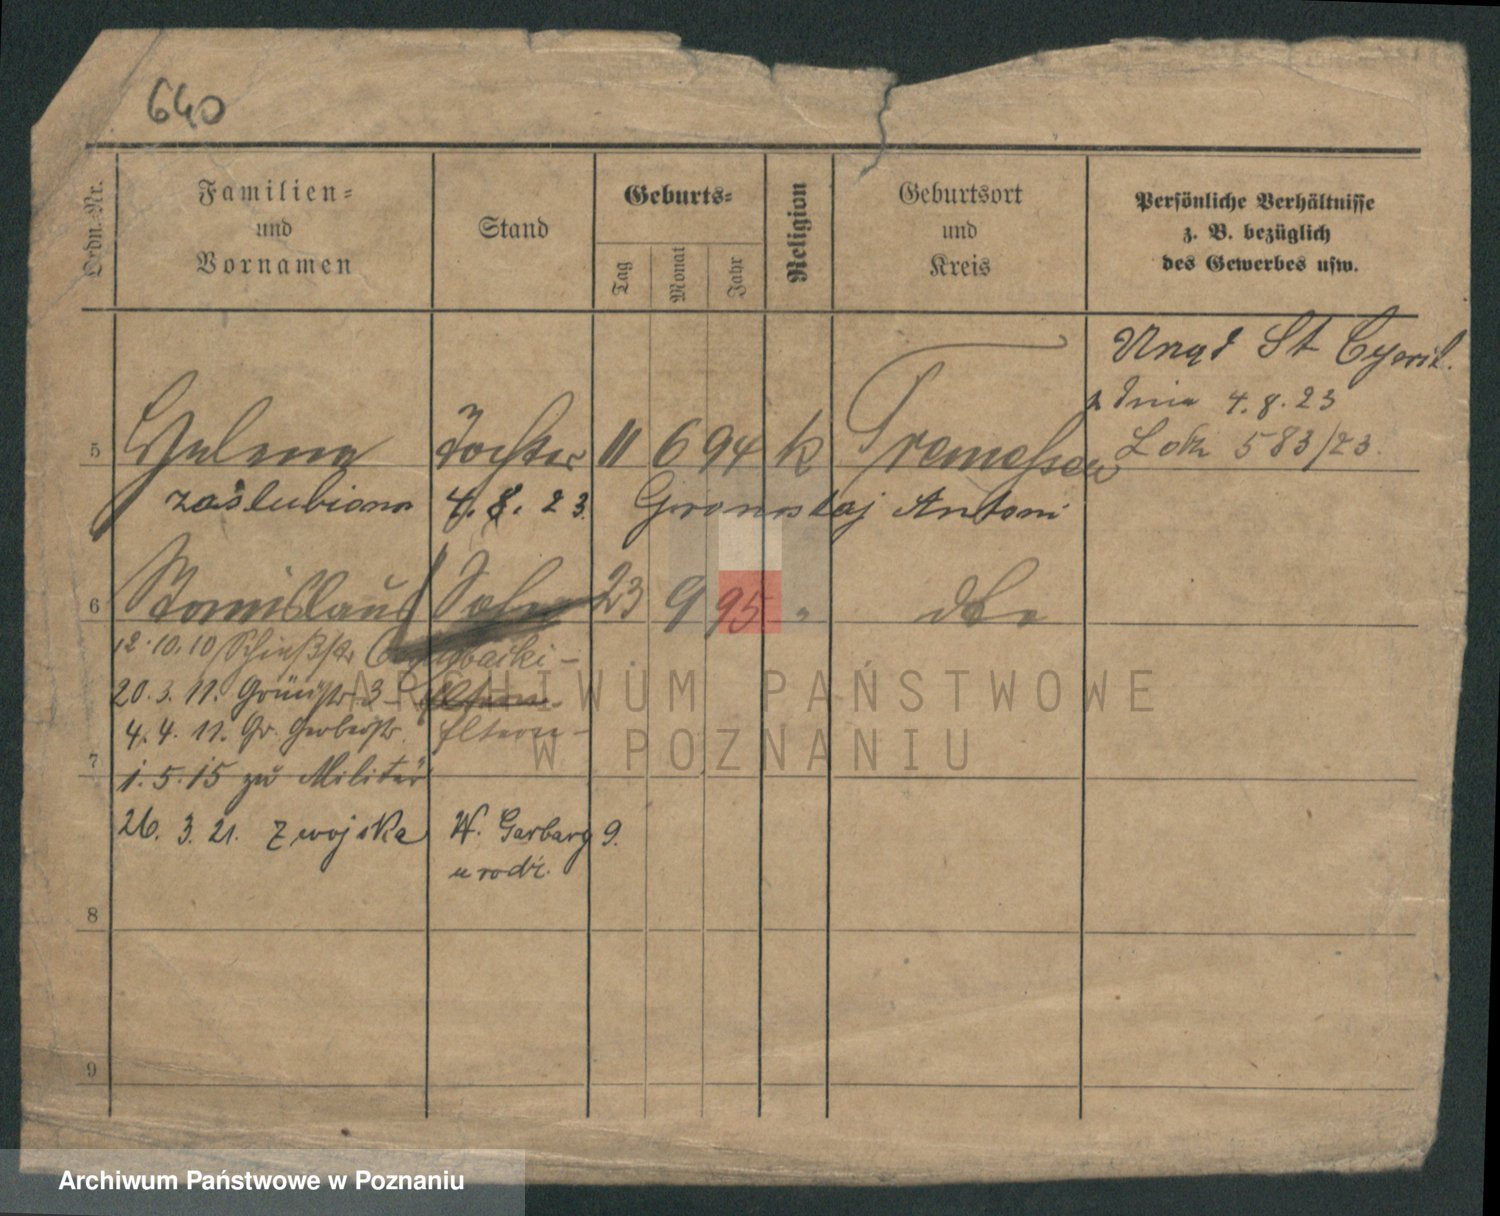 640
Ordn.-Nr.
Familien-
und
Vornamen
Stand
Geburts-
Tag
Monat
Jahr
Religion
Geburtsort
und
Kreis
Persönliche Verhältnisse
z. B. bezüglich
des Gewerbes usw.
Urząd St Cywil.
z dnia 4.8.23
5 Helena Tochter 11 6 94 k Tremessen 583/23.
zaślubiona 4.8.23. Gronostaj Antoni
6 Stanislaus Sohn 23 9 95 " dto
12.10.10
20.3.11. 3 Eltern
4.4.11. Gr. Gerberstr. Eltern -
7
1.5.15 zu Militär
26.3.21. z wojska W. Garbary 9.
u rodz.
8
9
ARCHIWUM PAŃSTWOWE
W POZNANIU
Archiwum Państwowe w Poznaniu